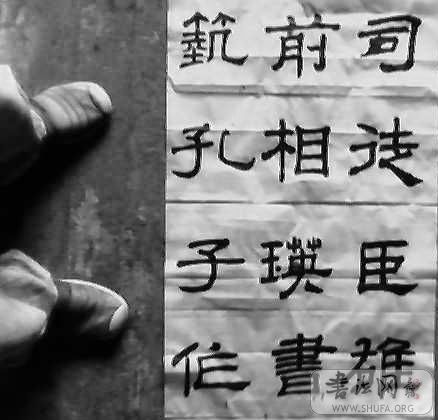 司徒臣雄
前相瑛書
蓺孔子作
書法网
WWW.SHUFA.ORG